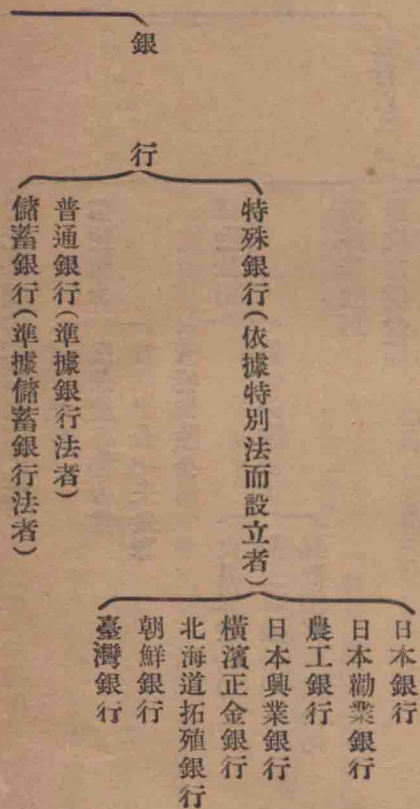 銀行
特殊銀行(依據特別法而設立者)
日本銀行
日本勸業銀行
農工銀行
日本興業銀行
橫濱正金銀行
北海道拓殖銀行
朝鮮銀行
臺灣銀行
普通銀行(準據銀行法者)
儲蓄銀行(準據儲蓄銀行法者)